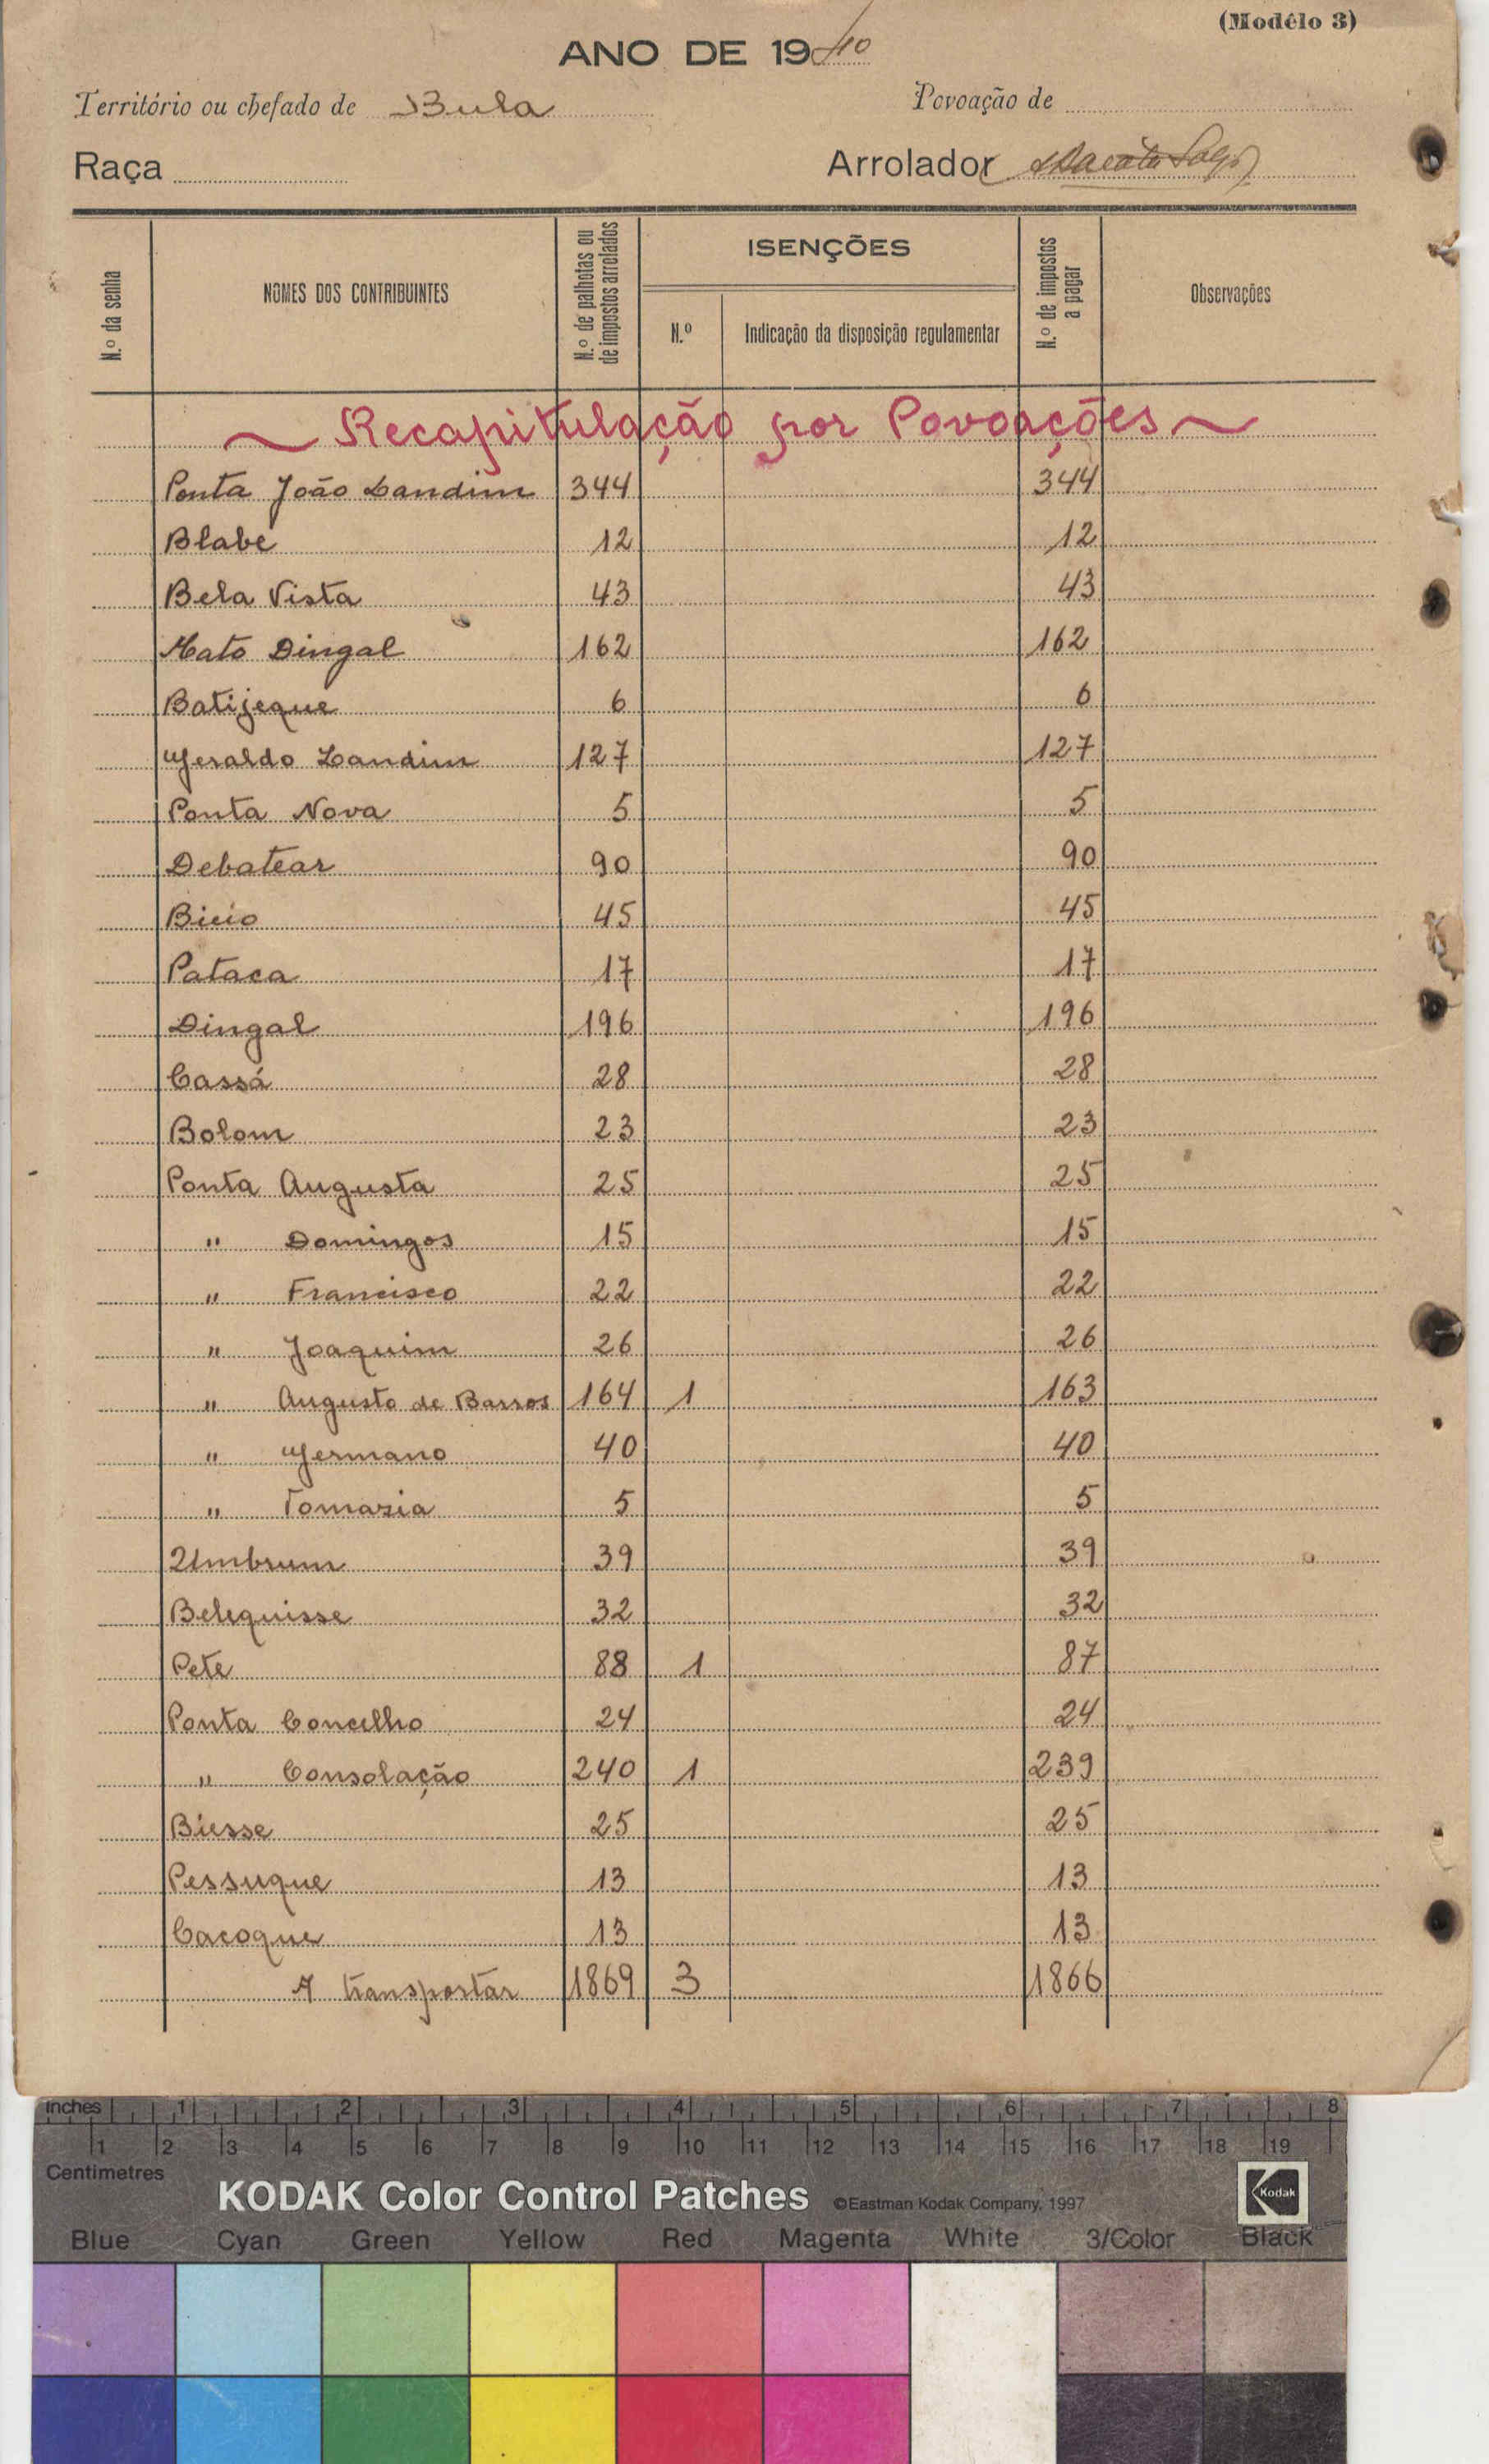 (Modêlo 3)
ANO DE 1940
Território ou chefado de Bula Povoação de
Raça Arrolador
N.º da senha NOMES DOS CONTRIBUINTES N.º de palhotas ou de impostos arrolados ISENÇÕES N.º Indicação da disposição regulamentar N.º de impostos a pagar Observações
~ Recapitulação por Povoações ~
Ponta João Landim 344 344
Blabe 12 12
Bela Vista 43 43
Mato Dingal 162 162
Batijeque 6 6
Geraldo Landim 127 127
Ponta Nova 5 5
Debatear 90 90
Bicio 45 45
Pataca 17 17
Dingal 196 196
Cassá 28 28
Bolom 23 23
Ponta Augusta 25 25
" Domingos 15 15
" Francisco 22 22
" Joaquim 26 26
" Augusto de Barros 164 1 163
" Germano 40 40
" Tomazia 5 5
Umbrum 39 39
Belequisse 32 32
Pete 88 1 87
Ponta Concelho 24 24
" Consolação 240 1 239
Biesse 25 25
Pessuque 13 13
Cacoque 13 13
A transportar 1869 3 1866
inches 1 2 3 4 5 6 7 8
1 2 3 4 5 6 7 8 9 10 11 12 13 14 15 16 17 18 19
Centimetres
KODAK Color Control Patches ©Eastman Kodak Company, 1997 Kodak
Blue Cyan Green Yellow Red Magenta White 3/Color Black